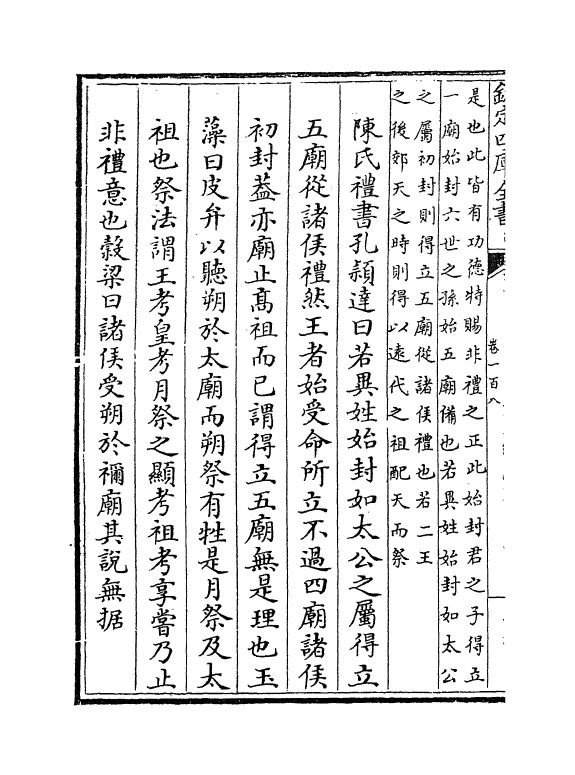 欽定四庫全書
卷一百八
是也此皆有功德特賜非禮之正此始封君之子得立
一廟始封六世之孫始五廟備也若異姓始封如太公
之屬初封則得立五廟從諸侯禮也若二王
之後郊天之時則得以遠代之祖配天而祭
陳氏禮書孔頴達曰若異姓始封如太公之屬得立
五廟從諸侯禮然王者始受命所立不過四廟諸侯
初封葢亦廟止髙祖而已謂得立五廟無是理也玉
藻曰皮弁以聽朔於太廟而朔祭有牲是月祭及太
祖也祭法謂王考皇考月祭之顯考祖考享嘗乃止
非禮意也糓梁曰諸侯受朔於禰廟其說無据